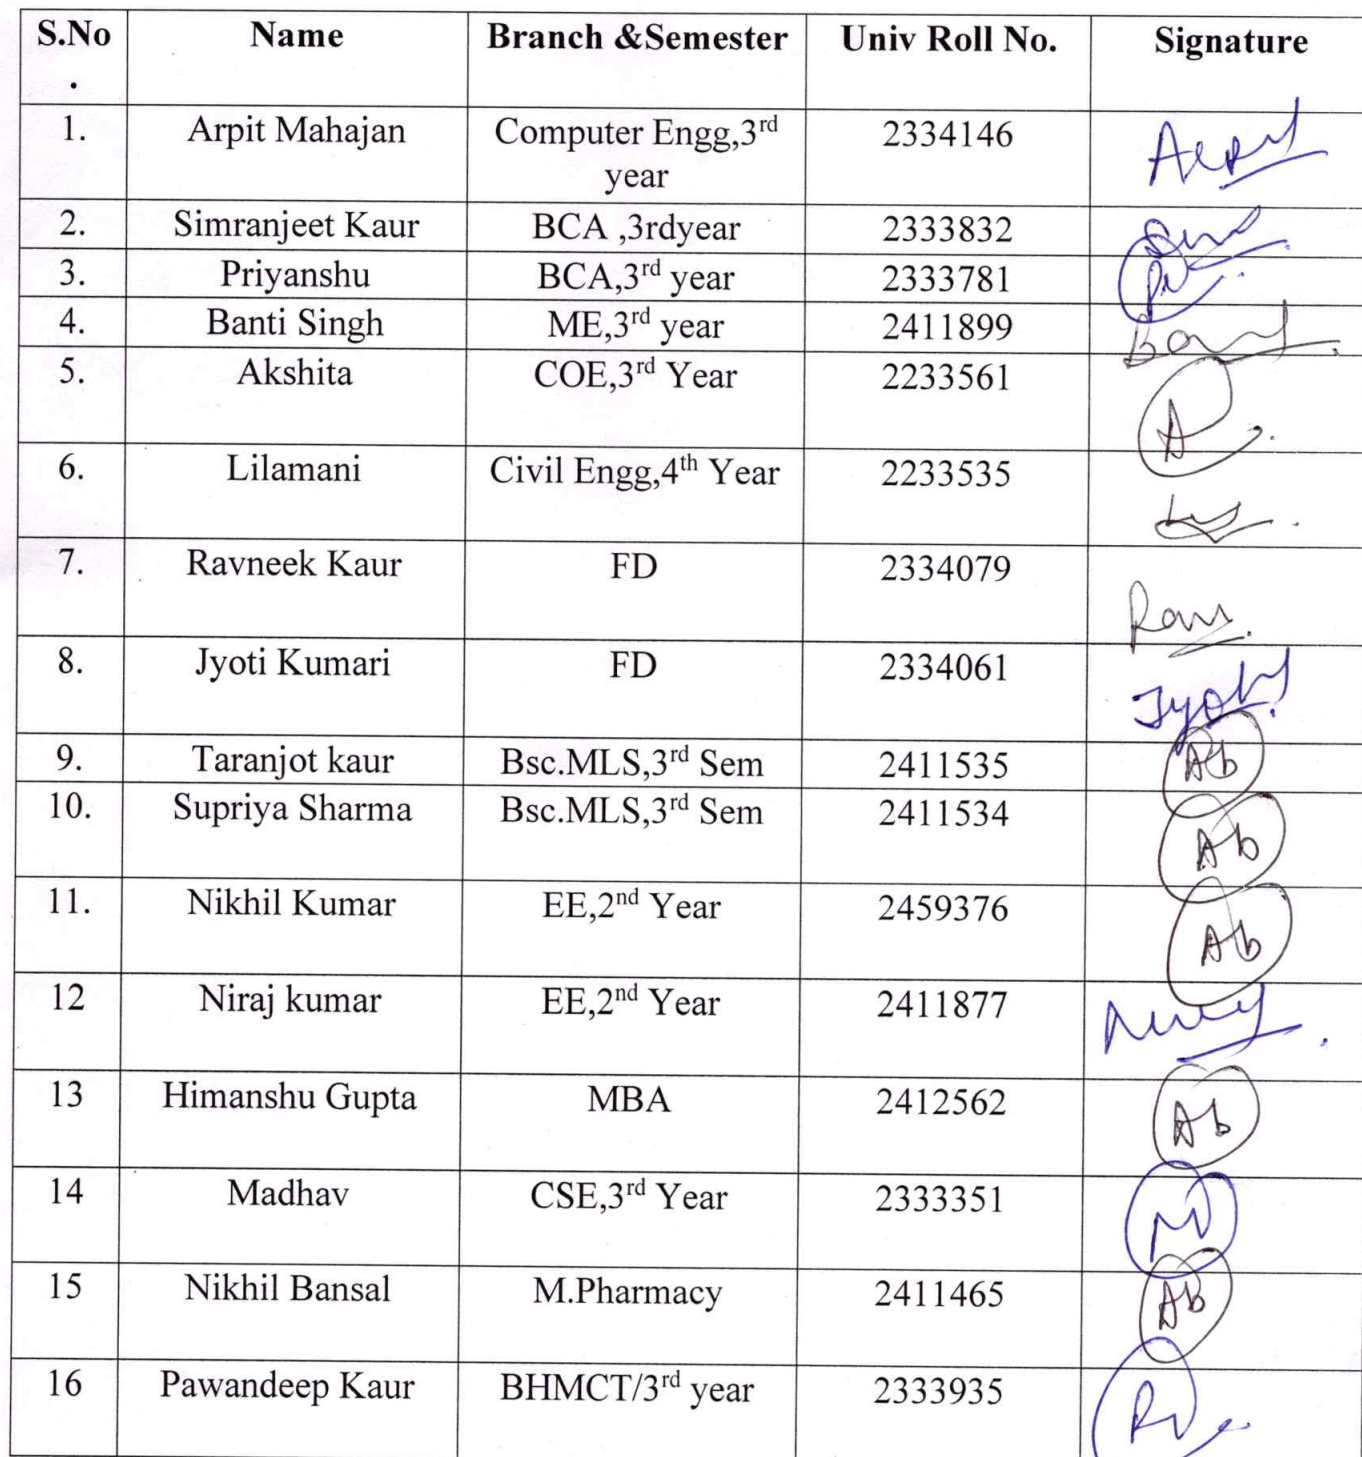 S.No Name Branch &Semester Univ Roll No. Signature
.
1. Arpit Mahajan Computer Engg,3rd 2334146
year
2. Simranjeet Kaur BCA ,3rdyear 2333832
3. Priyanshu BCA,3rd year 2333781
4. Banti Singh ME,3rd year 2411899
5. Akshita COE,3rd Year 2233561 A
6. Lilamani Civil Engg,4th Year 2233535
7. Ravneek Kaur FD 2334079
8. Jyoti Kumari FD 2334061 Jyoti
9. Taranjot kaur Bsc.MLS,3rd Sem 2411535 Ab
10. Supriya Sharma Bsc.MLS,3rd Sem 2411534 Ab
11. Nikhil Kumar EE,2nd Year 2459376 Ab
12 Niraj kumar EE,2nd Year 2411877
13 Himanshu Gupta MBA 2412562 Ab
14 Madhav CSE,3rd Year 2333351
15 Nikhil Bansal M.Pharmacy 2411465 Ab
16 Pawandeep Kaur BHMCT/3rd year 2333935